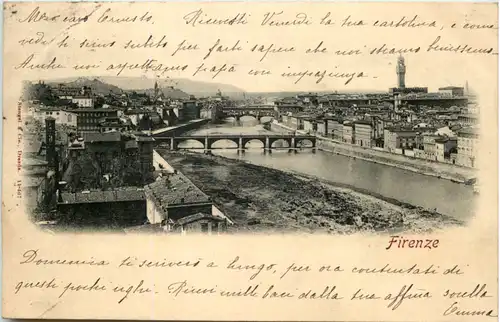 Mio caro Ernesto. Ricevetti Venerdì la tua cartolina, e come
vedi ti scrivo subito per farti sapere che noi stiamo benissimo.
Anche noi aspettiamo papà con impazienza.
Firenze
Stengel & Co., Dresda
Domenica ti scriverò a lungo, per ora contentati di
queste poche righe. Ricevi mille baci dalla tua affma sorella
Emma